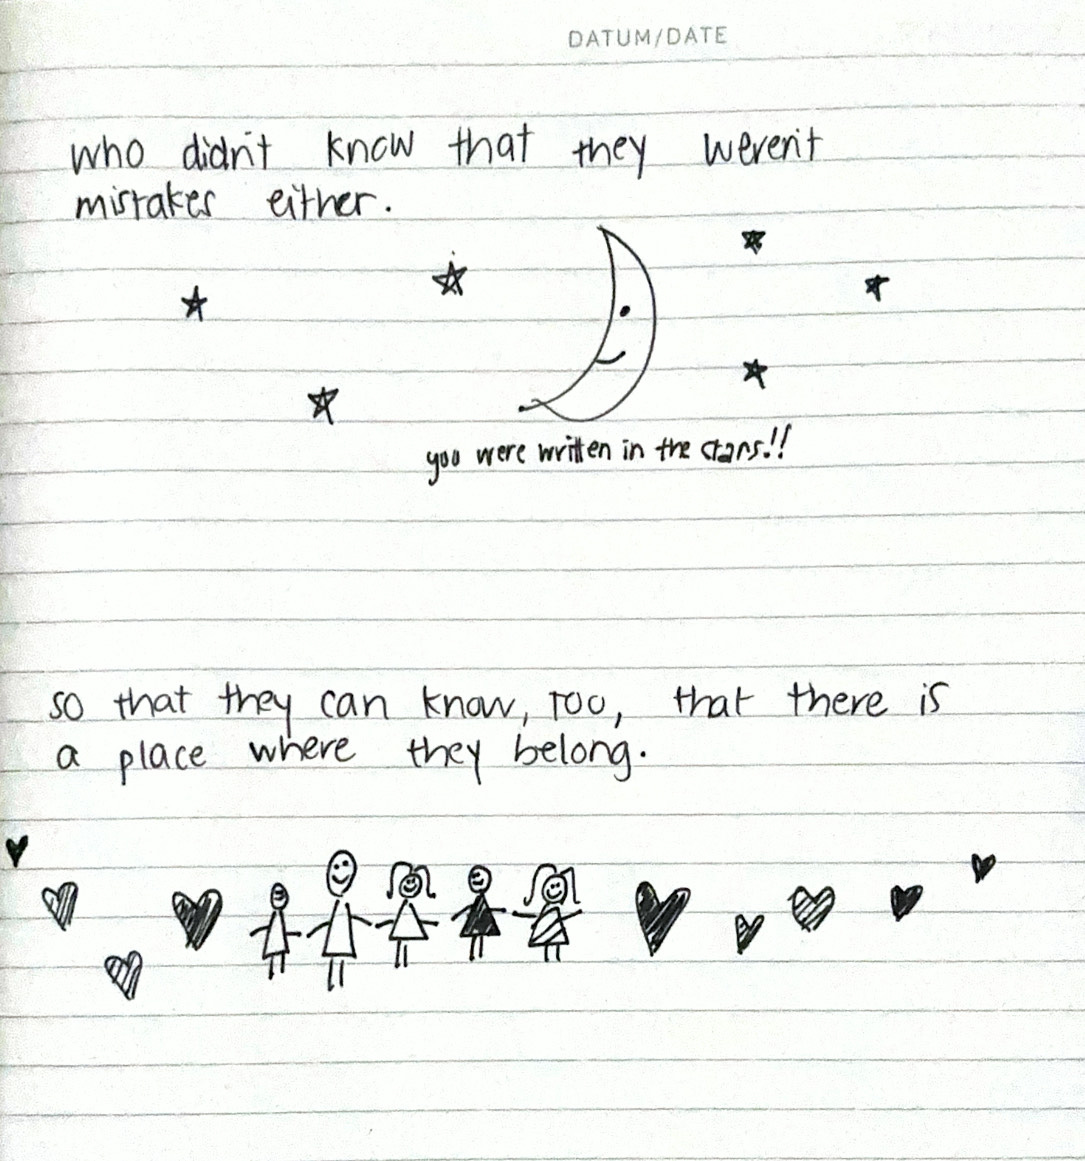 DATUM/DATE
who didn't know that they weren't
mistakes either.
you were written in the stars!!
so that they can know, too, that there is
a place where they belong.